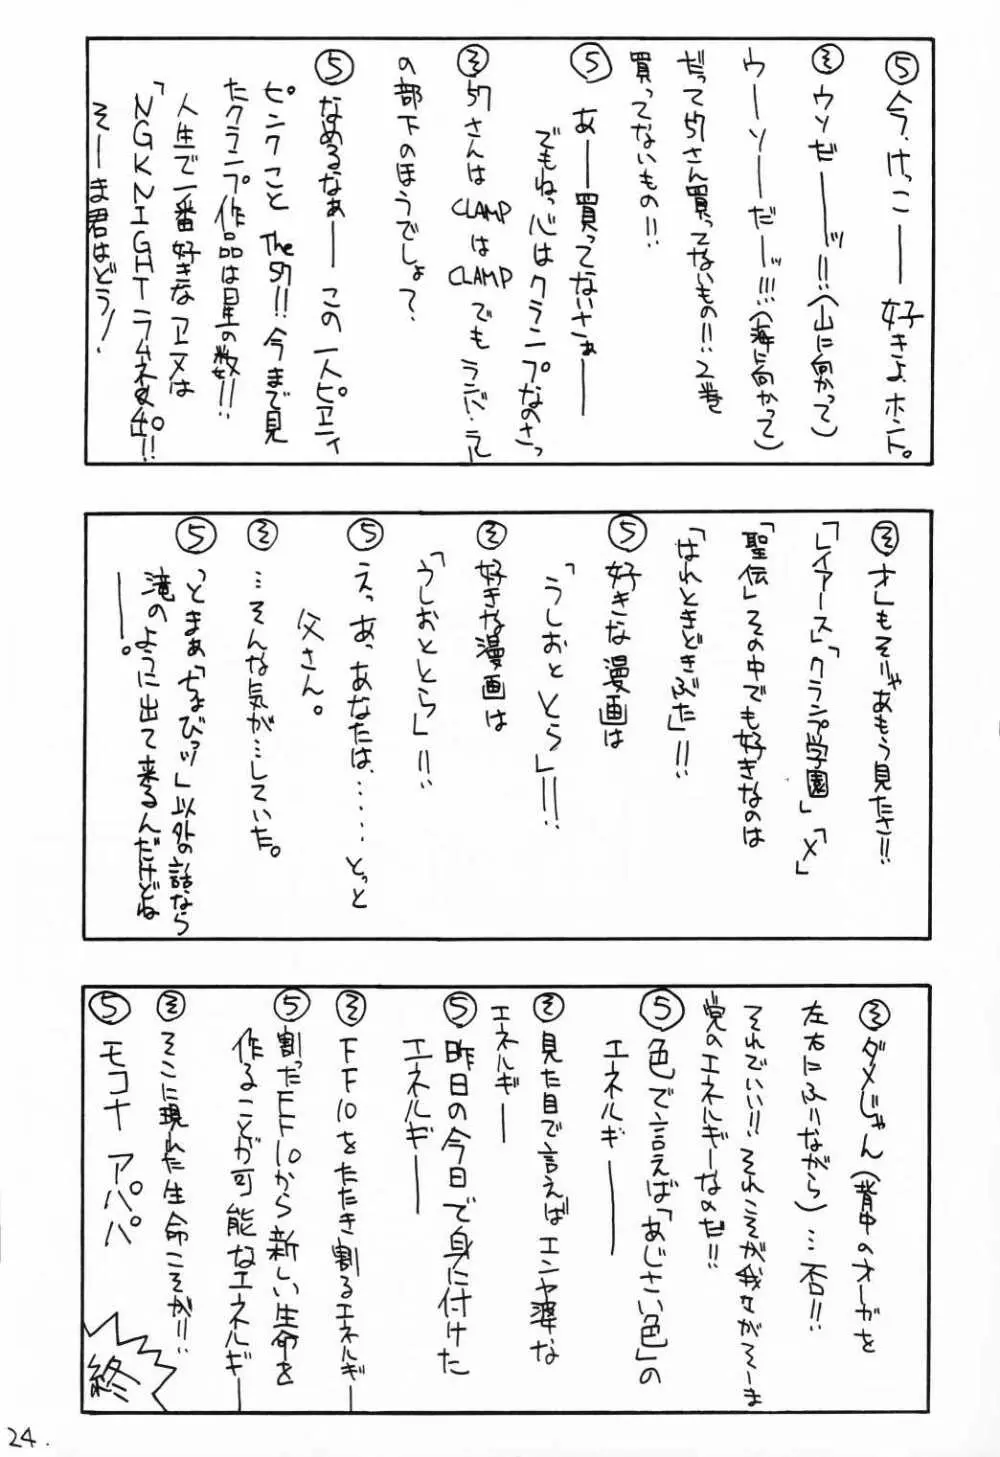 ⑤今、けっこ——好きよ、ホント。
㋞ウソゼ——ッ!!(山に向かって)
ウーソーだーッ!!!(海に向かって)
だって57さん買ってないもの!!:2巻
買ってないもの!!
⑤あ——買ってないさぁ——
でもねっ心はクランプなのさっ
㋞57さんはCLAMPはCLAMPでもランバ・ラル
の部下のほうでしょ?
⑤なめるなぁ——この一人ピエニィ
ピンクことThe57!!今まで見
たクランプ作品は星の数!!
人生で一番好きなアニメは
「NGKNIGHTラムネ&炎!!
そーま君はどう!
㋞オレもそりゃあもう見たさ!!
「レイアース」「クランプ学園」「X」
「聖伝」その中でも好きなのは
「はれときどきぶた」!!
⑤好きな漫画は
「うしおととら」!!!
㋞好きな漫画は
「うしおととら」!!
⑤えっあっあなたは……とっと
父さん。
㋞…そんな気が…していた。
⑤っとまぁ「ちょびッツ」以外の話なら
滝のように出て来るんだけどね
——。
㋞ダメじゃん(背中のオーガを
左右にふりながら)…否!!
それでいい!!それこそが我々がそーま
党のエネルギーなのだ!!
⑤色で言えば「あじさい色」の
エネルギ——
㋞見た目で言えばエンヤ婆な
エネルギー——
⑤昨日の今日で身に付けた
エネルギ——
㋞FF10をたたき割るエネルギ——
⑤割ったFF10から新しい生命を
作ることが可能なエネルギ——
㋞そこに現れた生命こそが!!
⑤モコナ アパパ
終
24.